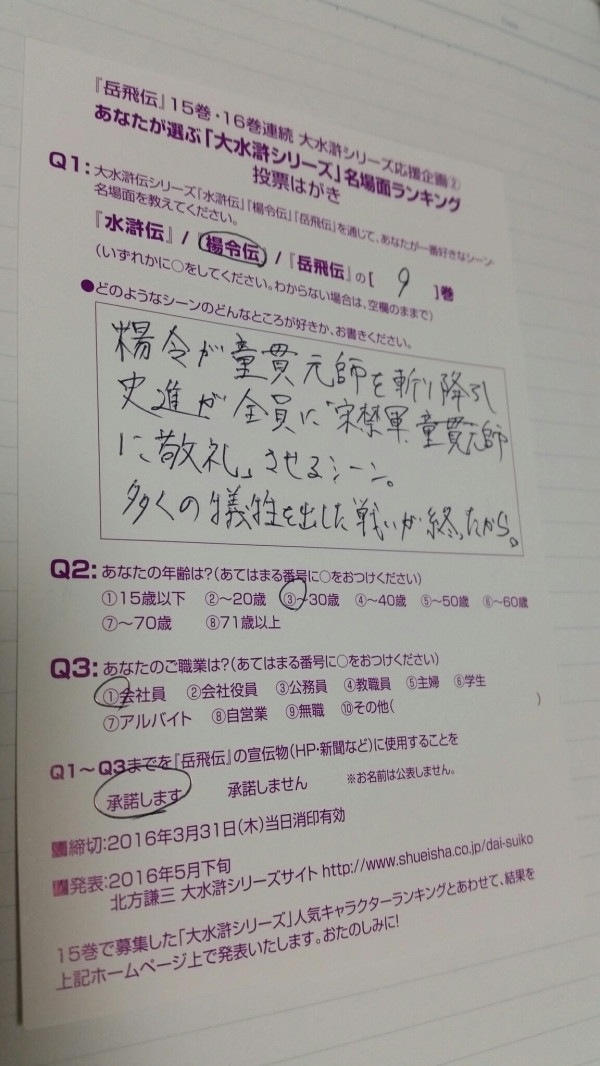 『岳飛伝』15巻・16巻連続 大水滸シリーズ応援企画②
あなたが選ぶ「大水滸シリーズ」名場面ランキング
投票はがき
Q1:大水滸伝シリーズ「水滸伝」「楊令伝」「岳飛伝」を通じて、あなたが一番好きなシーン・
名場面を教えてください。
『水滸伝』/『楊令伝』/『岳飛伝』の[ 9 ]巻
(いずれかに○をしてください。わからない場合は、空欄のままで)
●どのようなシーンのどんなところが好きか、お書きください。
楊令が童貫元師を斬り降ろし
史進が全員に「宋禁軍、童貫元師
に敬礼」させるシーン。
多くの犠牲を出した戦いが終ったから。
Q2:あなたの年齢は?(あてはまる番号に○をおつけください)
①15歳以下 ②~20歳 ③~30歳 ④~40歳 ⑤~50歳 ⑥~60歳
⑦~70歳 ⑧71歳以上
Q3:あなたのご職業は?(あてはまる番号に○をおつけください)
①会社員 ②会社役員 ③公務員 ④教職員 ⑤主婦 ⑥学生
⑦アルバイト ⑧自営業 ⑨無職 ⑩その他( )
Q1~Q3までを『岳飛伝』の宣伝物(HP・新聞など)に使用することを
承諾します 承諾しません ※お名前は公表しません。
締切:2016年3月31日(木)当日消印有効
発表:2016年5月下旬
北方謙三 大水滸シリーズサイト http://www.shueisha.co.jp/dai-suiko
15巻で募集した「大水滸シリーズ」人気キャラクターランキングとあわせて、結果を
上記ホームページ上で発表いたします。おたのしみに!